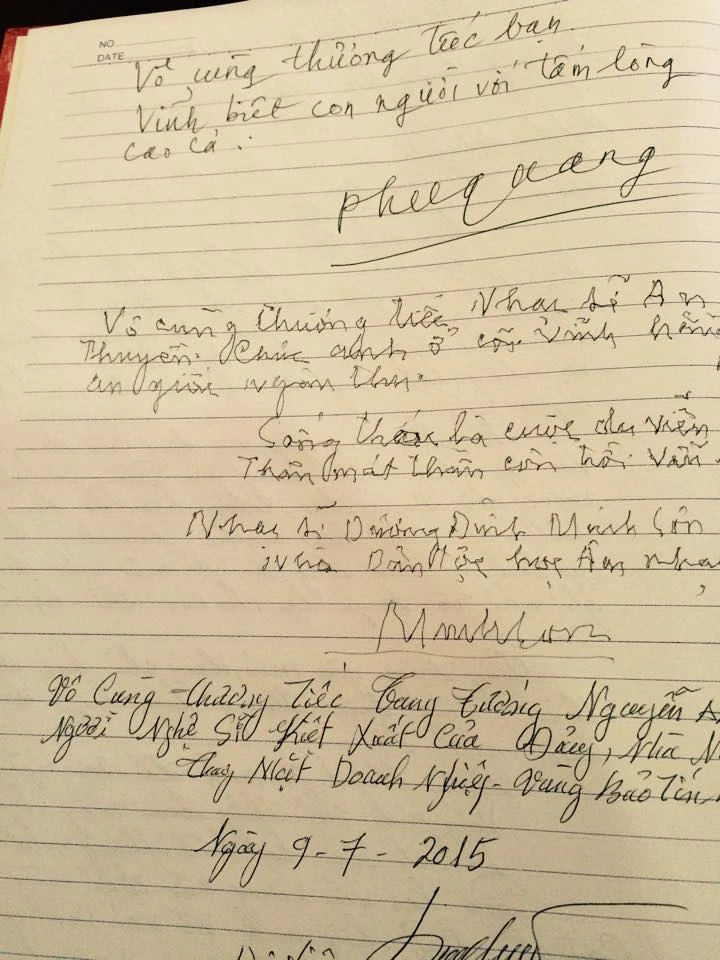 NO
DATE
Vô cùng thương tiếc bạn.
Vĩnh biệt con người với tấm lòng
cao cả.
phuquang
Vô cùng thương tiếc Nhạc sĩ An
Thuyên. Chúc anh ở cõi vĩnh hằng
an giấc ngàn thu.
Sống là cuộc du
Thân mất thần còn hồi vẫn
Nhạc sĩ Dương Đình Minh Sơn
Nhà Dân tộc học Âm nhạ
Minhsơn
Vô Cùng thương Tiếc Tướng Nguyễn A
Người Nghệ Sĩ Kiệt Xuất Của Đảng, Nhà N
Thay Mặt Doanh Nghiệp Vàng Bảo Tín
Ngày 9-7-2015